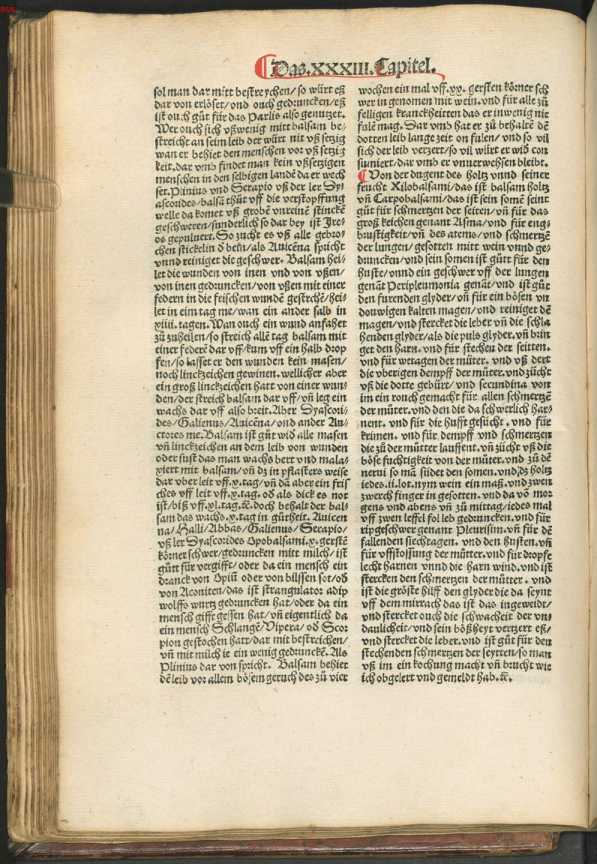 Das.XXXIII.Capitel.
sol man dar mitt bestreychen/so würt eß
dar von erlöset/vnd ouch gedruncken/eß
ist ouch gůt für das Parlis also genutzet.
Wer ouch sich vßwenig mitt balsam be-
streicht an seim leib der würt nit vß setzig
wan er behiet den menschen vor vß setzig
keit.dar vmb findet man kein vßsetzigen
menschen in den selbigen landē da er wech
set.Plinius vnd Serapio vß der ler Dy
ascorides/balsā thůt vff die verstopffung
welle da komet vß grobē vnreinē stinckē
geschweren/sunderlich so dar bey ist Ire-
os gepuluert.So zucht es vß alle gebro-
chen stickelin
vnnd reiniget die geschwer. Balsam hei-
let die wunden von inen vnd von vßen/
von inen gedruncken/von vßen mit einer
federn in die frischen wundē gestrichē/hei-
let in eim tag me/wan ein ander salb in
xiiii.tagen.Wan ouch ein wund anfahet
zů zuheilen/so streich allē tag balsam mit
einer federē dar vff/kum vff ein halb drop
fen/so lasset er den wunden kein masen/
noch linckzeichen gewinen.wellicher aber
ein groß linckzeichen hatt von einer wun/
den/der streich balsam dar vff/vñ leg ein
wachs dar vff also breit.Aber Dyascori-
des/Galienus/Auicēna/vnd ander Au-
ctores me.Balsam ist gůt wid alle masen
vñ linckzeichen an dem leib von wunden
oder sust das man wachs bert vnd mala-
xiert mit balsam/vñ dz in pflasters weise
dar vber leit vff.x.tag/vñ dā aber ein fris
ches vff leit vff.x.tag.
ist/biß vff.xl.tag.&c.doch behalt der bal-
sam das wachs.x.tag in gůtheit.Auicen
na/Halli/Abbas/Galienus/Serapio/
vß ler Dyascorides Opobalsami.x.gerstē
körner schwer/gedruncken mit milch/ist
gůtt für vergifft/oder da ein mensch ein
dranck von Opiū oder von bilssen
von Aconiten/das ist strangulator adip
wolffs wurtz gedruncken hat/oder da ein
mensch gifft gessen hat/vñ eigentlich da
ein mensch Schlangē/Vipera/
pion gestochen hatt/dar mit bestreichen/
vñ mit milch ie ein wenig gedrunckē.Als
Plinius dar von spricht. Balsam behiet
dē leib vor allem bösem geruch des zů vier
wochen ein mal vff.xx. gersten körner sch
wer in genomen mit wein.vnd für alle zů
felligen kranckheitten das er inwenig nit
fulē mag.Dar vmb hat er zů behaltē dē
dotten leib lange zeit on fulen/vnd so vil
sich der leib verzert/so vil würt er
sumiert/dar vmb er vnuerwesen bleibt.
Von der dugent des holtz vnnd seiner
frucht Xilobalsami/das ist balsam holtz
vñ Carpobalsami/das ist sein somē seint
gůt für schmertzen der seiten/vñ für das
groß keichen genant Asma/vnd für eng-
brustigkeit/vñ des atems/vnd schmertzē
der lungen/gesotten mitt wein vnnd ge-
druncken/vnd sein somen ist gůtt für den
hůste/vnnd ein geschwer vff der lungen
genāt Peripleumonia genāt/vnd ist gůt
den furenden glyder/vñ für ein bösen vn
douwigen kalten magen/vnd reiniget dē
magen/vnd stercket die leber vñ die schla
henden glyder/als die puls glyder.vñ brin
get den harn.vnd für stechen der seitten.
vnd für wetagen der můter.vnd vß dert
die vberigen dempff der můter.vnd zücht
vß die dotte gebürt/vnd secundina von
im ein rouch gemacht für allen schmertzē
der můter.vnd den die da schwerlich har-
nent. vnd für die hufft gesücht. vnd für
krimen. vnd für dempff vnd schmertzen
die zů der můtter lauffent.vñ zücht vß die
böse fuchtigkeit von der můter.vnd zů dē
nerui so mā südet den somen.vnd dz holtz
iedes.ii.lot.nym wein ein maß.vnd zwen
zwerch finger in gesotten.vnd da vō mor
gens vnd abens vñ zů mittag/iedes mal
vff zwen leffel fol leb gedruncken.vnd für
ripgeschwer genant Pleurisim.vñ für dē
fallenden siechtagen. vnd den hůsten.vñ
für vffstossung der můtter.vnd für dropfe
lecht harnen vnnd die harn wind.vnd ist
stercken den schmertzen der můtter. vnd
ist die gröste hilff den glyder die da seynt
vff dem mirrach das ist das ingeweidt/
vnd stercket ouch die schwacheit der vn-
daulicheit/vnd sein bößheyt vertzert eß/
vnd stercket die leber.vnd ist gůt für den
stechenden schmertzen der seytten/so man
vß im ein kochung macht vñ brucht wie
ich obgelert vnd gemeldt hab.&c.